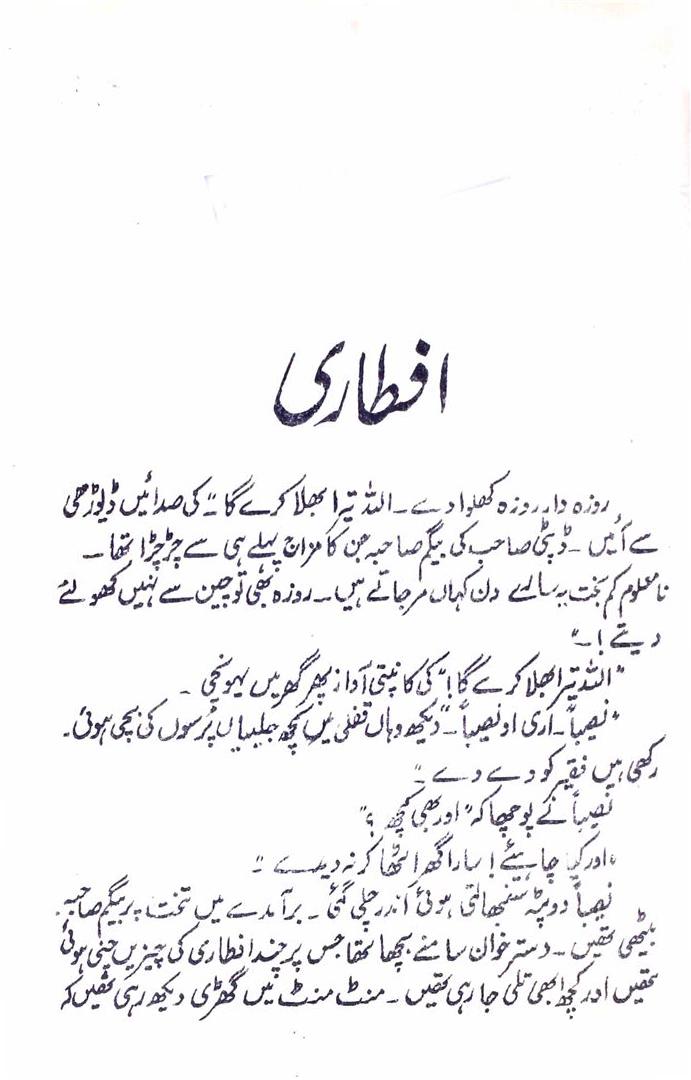 افطاری
روزہ دار۔ روزہ کھلوادے۔ اللہ تیرا بھلا کرے گا"۔ کی صدائیں ڈیوڑھی
سے آئیں۔ ڈپٹی صاحب کی بیگم صاحبہ جن کا مزاج پہلے ہی سے چڑچڑا تھا۔
نامعلوم کم بخت یہ سالے دن کہاں مرجاتے ہیں۔ روزہ بھی تو چین سے نہیں کھولنے
دیتے!۔"
"اللہ تیرا بھلا کرے گا!" کی کانپتی آواز پھر گھر میں پہونچی۔
"نصیباً۔ اری او نصیباً۔ دیکھ وہاں قفلی میں کچھ جلیبیاں پرسوں کی بچی ہوئی۔
رکھی ہیں فقیر کو دے دے۔"
نصیباً نے پوچھا کہ "اور بھی کچھ؟"
"اور کیا چاہیئے! سارا گھر اٹھا کر نہ دیدے۔"
نصیباً دوپٹہ سنبھالتی ہوئی اندر چلی گئی۔ برآمدے میں تخت پر بیگم صاحبہ
بیٹھی تھیں۔ دسترخوان سامنے بچھا تھا جس پر چند افطاری کی چیزیں چنی ہوئی
تھیں اور کچھ ابھی تلی جا رہی تھیں۔ منٹ منٹ میں گھڑی دیکھ رہی تھیں کہ